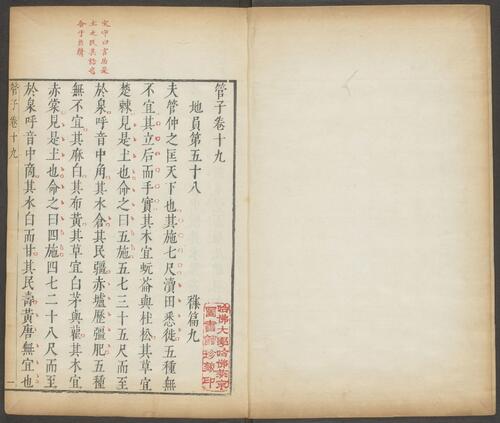 管子卷十九
地員第五十八
雜篇九
夫管仲之匡天下也其施七尺瀆田悉徙五種無
不宜其立后而手實其木宜蚖菕與杜松其草宜
楚棘見是土也命之曰五施五七三十五尺而至
於泉呼音中角其水倉其民彊赤壚歷彊肥五種
無不宜其麻白其布黃其草宜白茅與雚其木宜
赤棠見是土也命之曰四施四七二十八尺而至
於泉呼音中商其水白而甘其民壽黃唐無宜也
管子卷十九
一
哈佛大學哈佛燕京
圖書館珍藏印